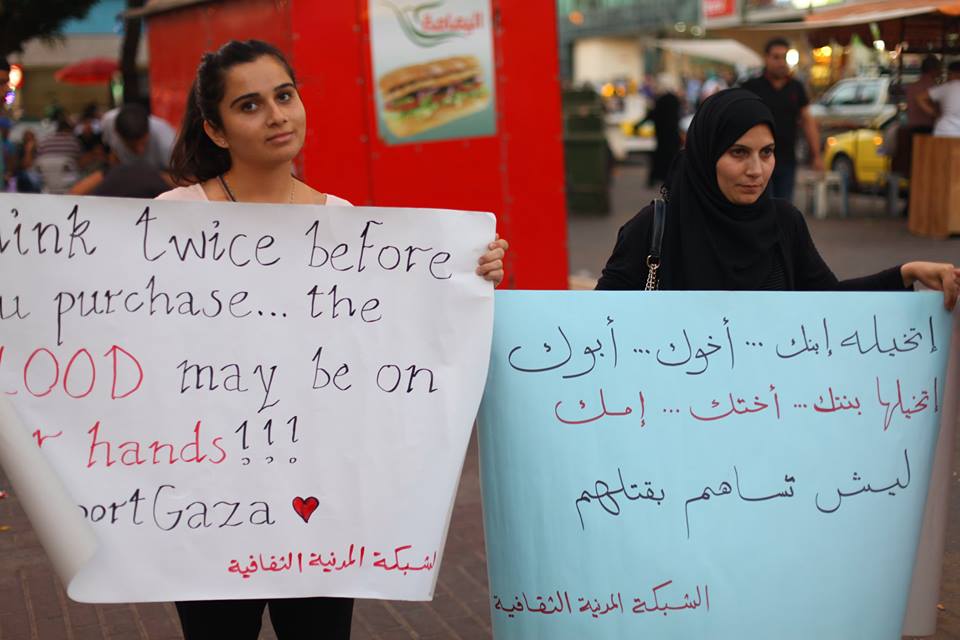 اليمامة
hink twice before
u purchase... the
LOOD may be on
r hands!!!
portGaza ♥
الشبكة المدنية الثقافية
إتخيله إبنك ... أخوك ... أبوك
إتخيلها بنتك ... أختك ... إمك
ليش تساهم بقتلهم
الشبكة المدنية الثقافية